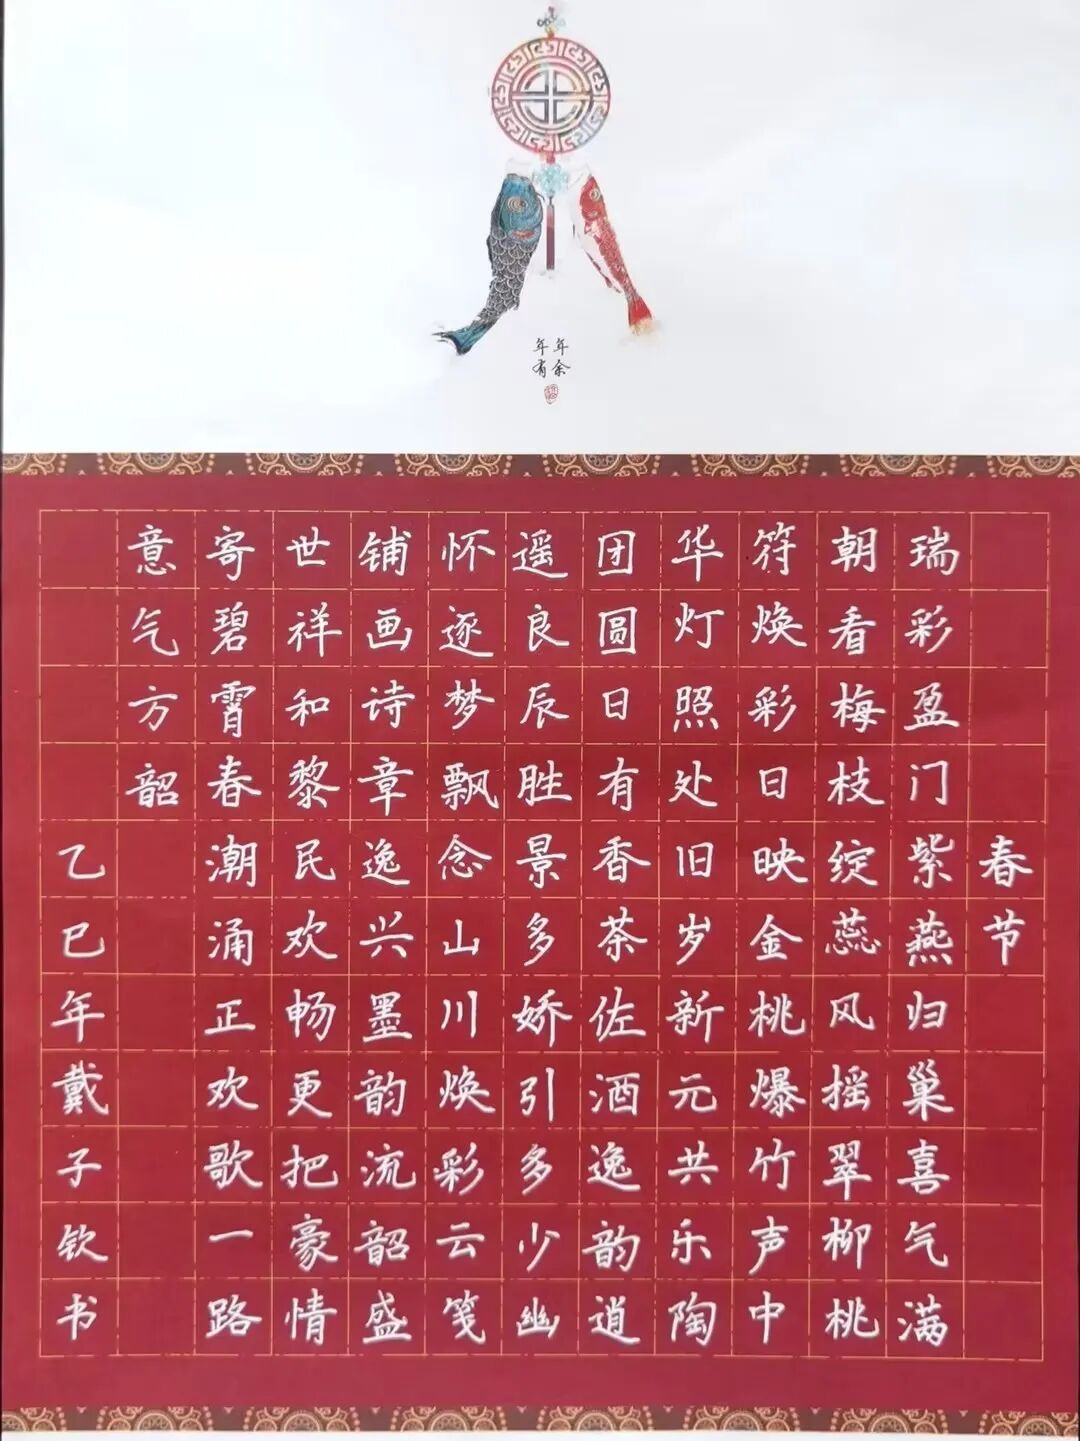 年年
有余
春节
瑞彩盈门紫燕归巢喜气满
朝看梅枝绽蕊风摇翠柳桃
符焕彩日映金桃爆竹声中
华灯照处旧岁新元共乐陶
团圆日有香茶佐酒逸韵道
遥良辰胜景多娇引多少幽
怀逐梦飘念山川焕彩云笺
铺画诗章逸兴墨韵流韶盛
世祥和黎民欢畅更把豪情
寄碧霄春潮涌正欢歌一路
意气方韶
乙巳年戴子钦书